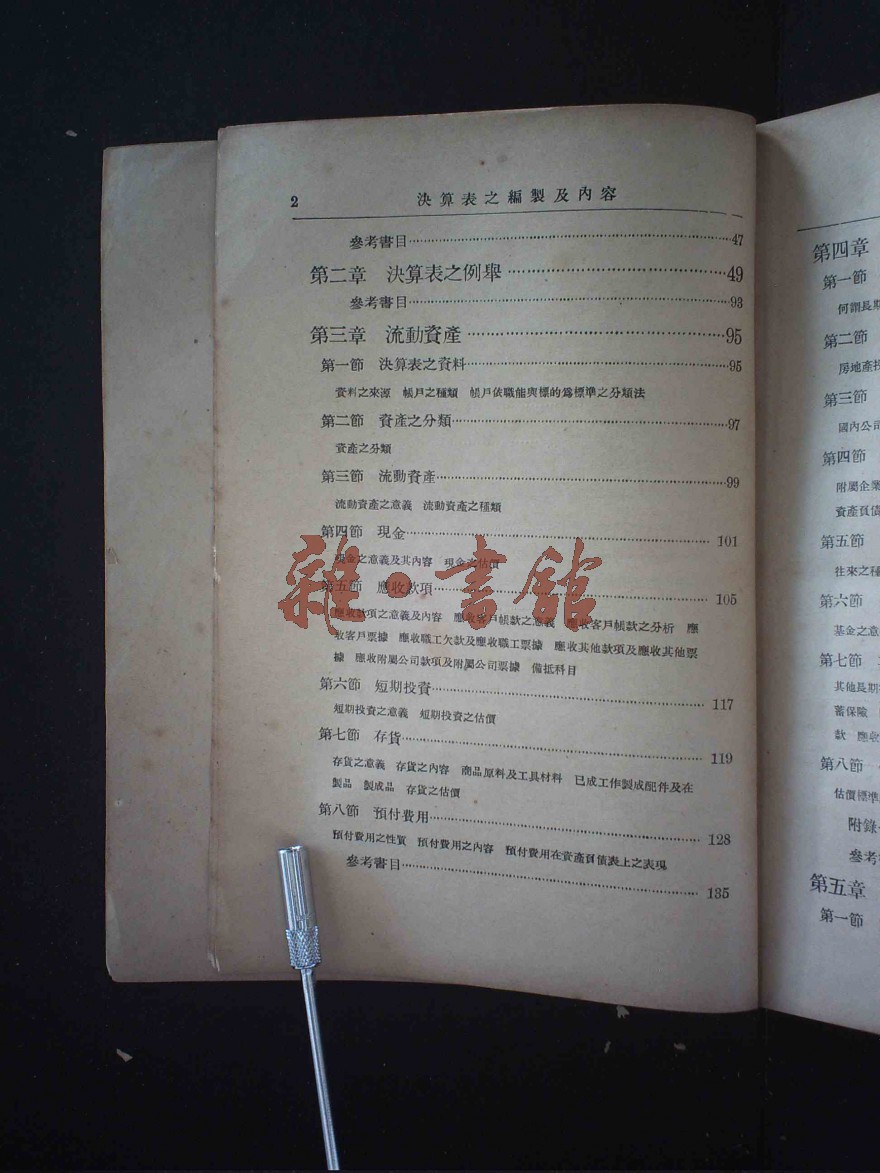 2 決算表之編製及內容
參考書目……47
第二章 決算表之例舉……49
參考書目……93
第三章 流動資產……95
第一節 決算表之資料……95
資料之來源 帳戶之種類 帳戶依職能與標的爲標準之分類法
第二節 資產之分類……97
資產之分類
第三節 流動資產……99
流動資產之意義 流動資產之種類
第四節 現金……101
現金之意義及其內容 現金之估價
第五節 應收款項……105
應收款項之意義及內容 應收客戶帳款之意義 應收客戶帳款之分析 應
收客戶票據 應收職工欠款及應收職工票據 應收其他款項及應收其他票
據 應收附屬公司款項及附屬公司票據 備抵科目
第六節 短期投資……117
短期投資之意義 短期投資之估價
第七節 存貨……119
存貨之意義 存貨之內容 商品原料及工具材料 已成工作製成配件及在
製品 製成品 存貨之估價
第八節 預付費用……128
預付費用之性質 預付費用之內容 預付費用在資產負債表上之表現
參考書目……135
雜·書館
第四章
第一節
何謂長期
第二節
房地產投
第三節
國內公司
第四節
附屬企業
資產負債
第五節
往來之種
第六節
基金之意
第七節
其他長期
蓄保險
款 應收
第八節
估價標準
附錄
參考
第五章
第一節